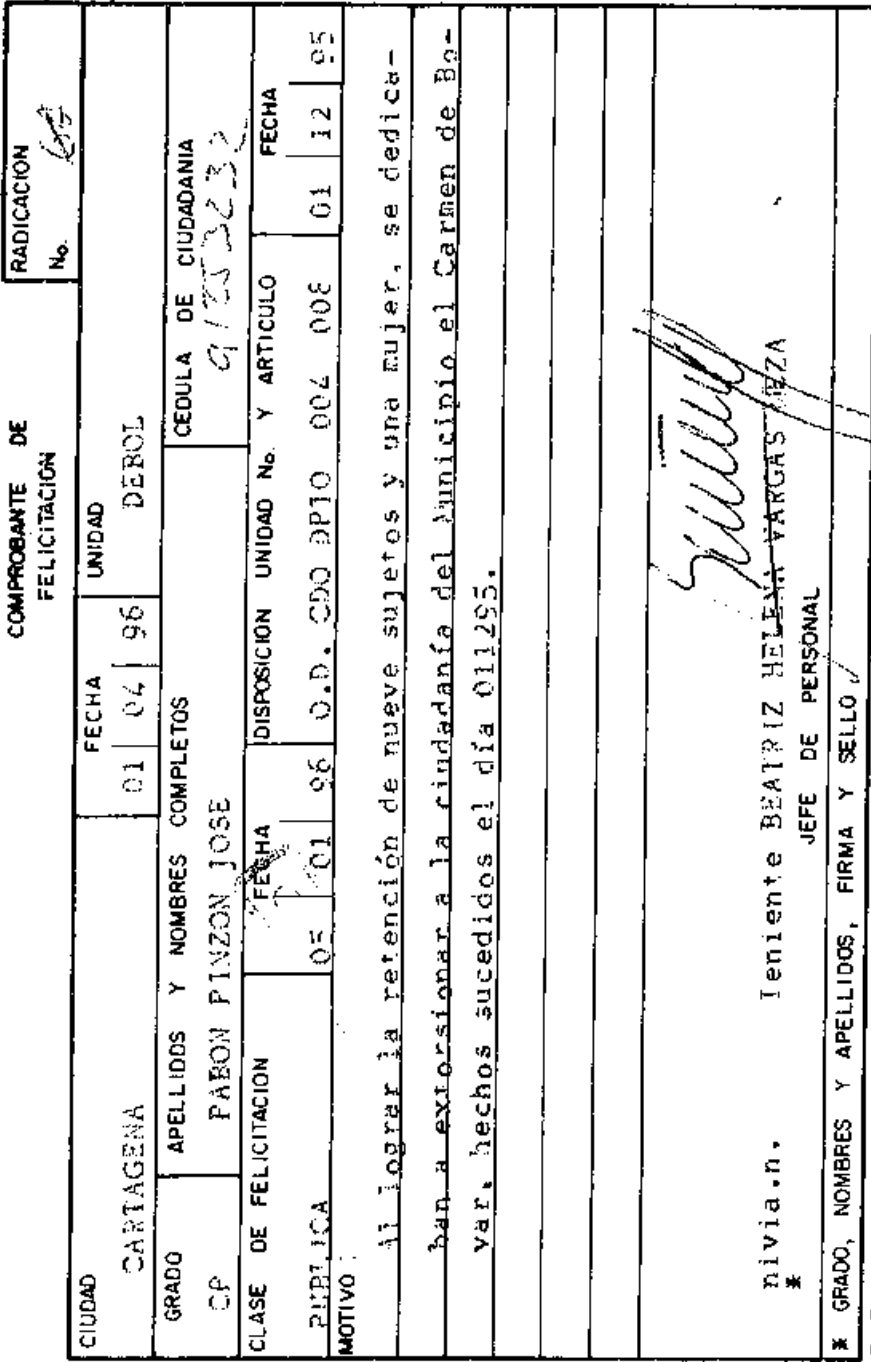 COMPROBANTE DE
FELICITACION
RADICACION
No.
CIUDAD
CARTAGENA
FECHA
01 04 96
UNIDAD
DEBOL
GRADO
CP
APELLIDOS Y NOMBRES COMPLETOS
PABON PINZON JOSE
CEDULA DE CIUDADANIA
CLASE DE FELICITACION
PUBLICA
FECHA
05 01 96
DISPOSICION UNIDAD No. Y ARTICULO
O.D. CDO DPTO 004 008
FECHA
01 12 95
MOTIVO :
Al lograr la retención de nueve sujetos y una mujer, se dedica-
ban a extorsionar a la ciudadanía del Municipio el Carmen de Bo-
var, hechos sucedidos el día 011295.
nivia.n. Teniente BEATRIZ HELENA VARGAS MEZA
* JEFE DE PERSONAL
* GRADO, NOMBRES Y APELLIDOS, FIRMA Y SELLO